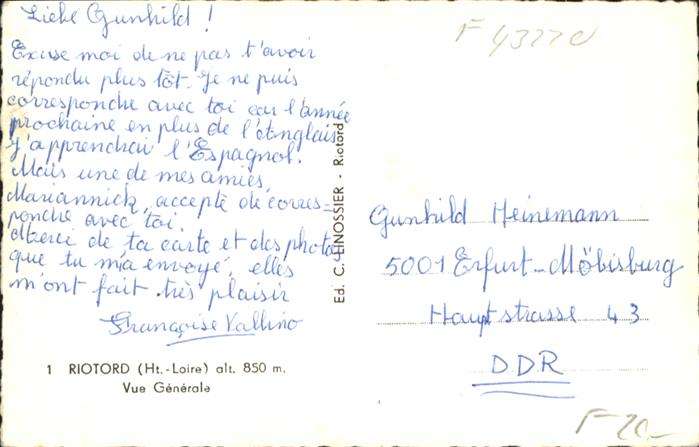 Liebe Gunhild !
Excuse moi de ne pas t'avoir
répondu plus tôt. Je ne puis
correspondre avec toi car l'année
prochaine en plus de l'Anglais
j'apprendrai l'Espagnol.
Mais une de mes amies,
Mariannick, accepte de corres-
pondre avec toi.
Merci de ta carte et des photos
que tu m'a envoyé, elles
m'ont fait très plaisir
Françoise Vallino
1 RIOTORD (Ht.-Loire) alt. 850 m.
Vue Générale
Ed. C. LINOSSIER - Riotord
F 4377d
Gunhild Heinemann
5001 Erfurt-Möbisburg
Hauptstrasse 43
DDR
F-20-